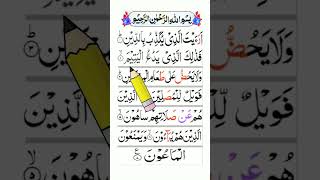 بِسْمِ اللهِ الرَّحْمٰنِ الرَّحِيْمِ
اَرَءَيْتَ الَّذِيْ يُكَذِّبُ بِالدِّيْنِ
فَذٰلِكَ الَّذِيْ يَدُعُّ الْيَتِيْمَ
وَلَا يَحُضُّ عَلٰى طَعَامِ
فَوَيْلٌ لِّلْمُصَلِّيْنَ الَّذِيْنَ
هُمْ عَنْ صَلَاتِهِمْ سَاهُوْنَ
الَّذِيْنَ هُمْ يُرَآءُوْنَ وَيَمْنَعُوْنَ
الْمَاعُوْنَ